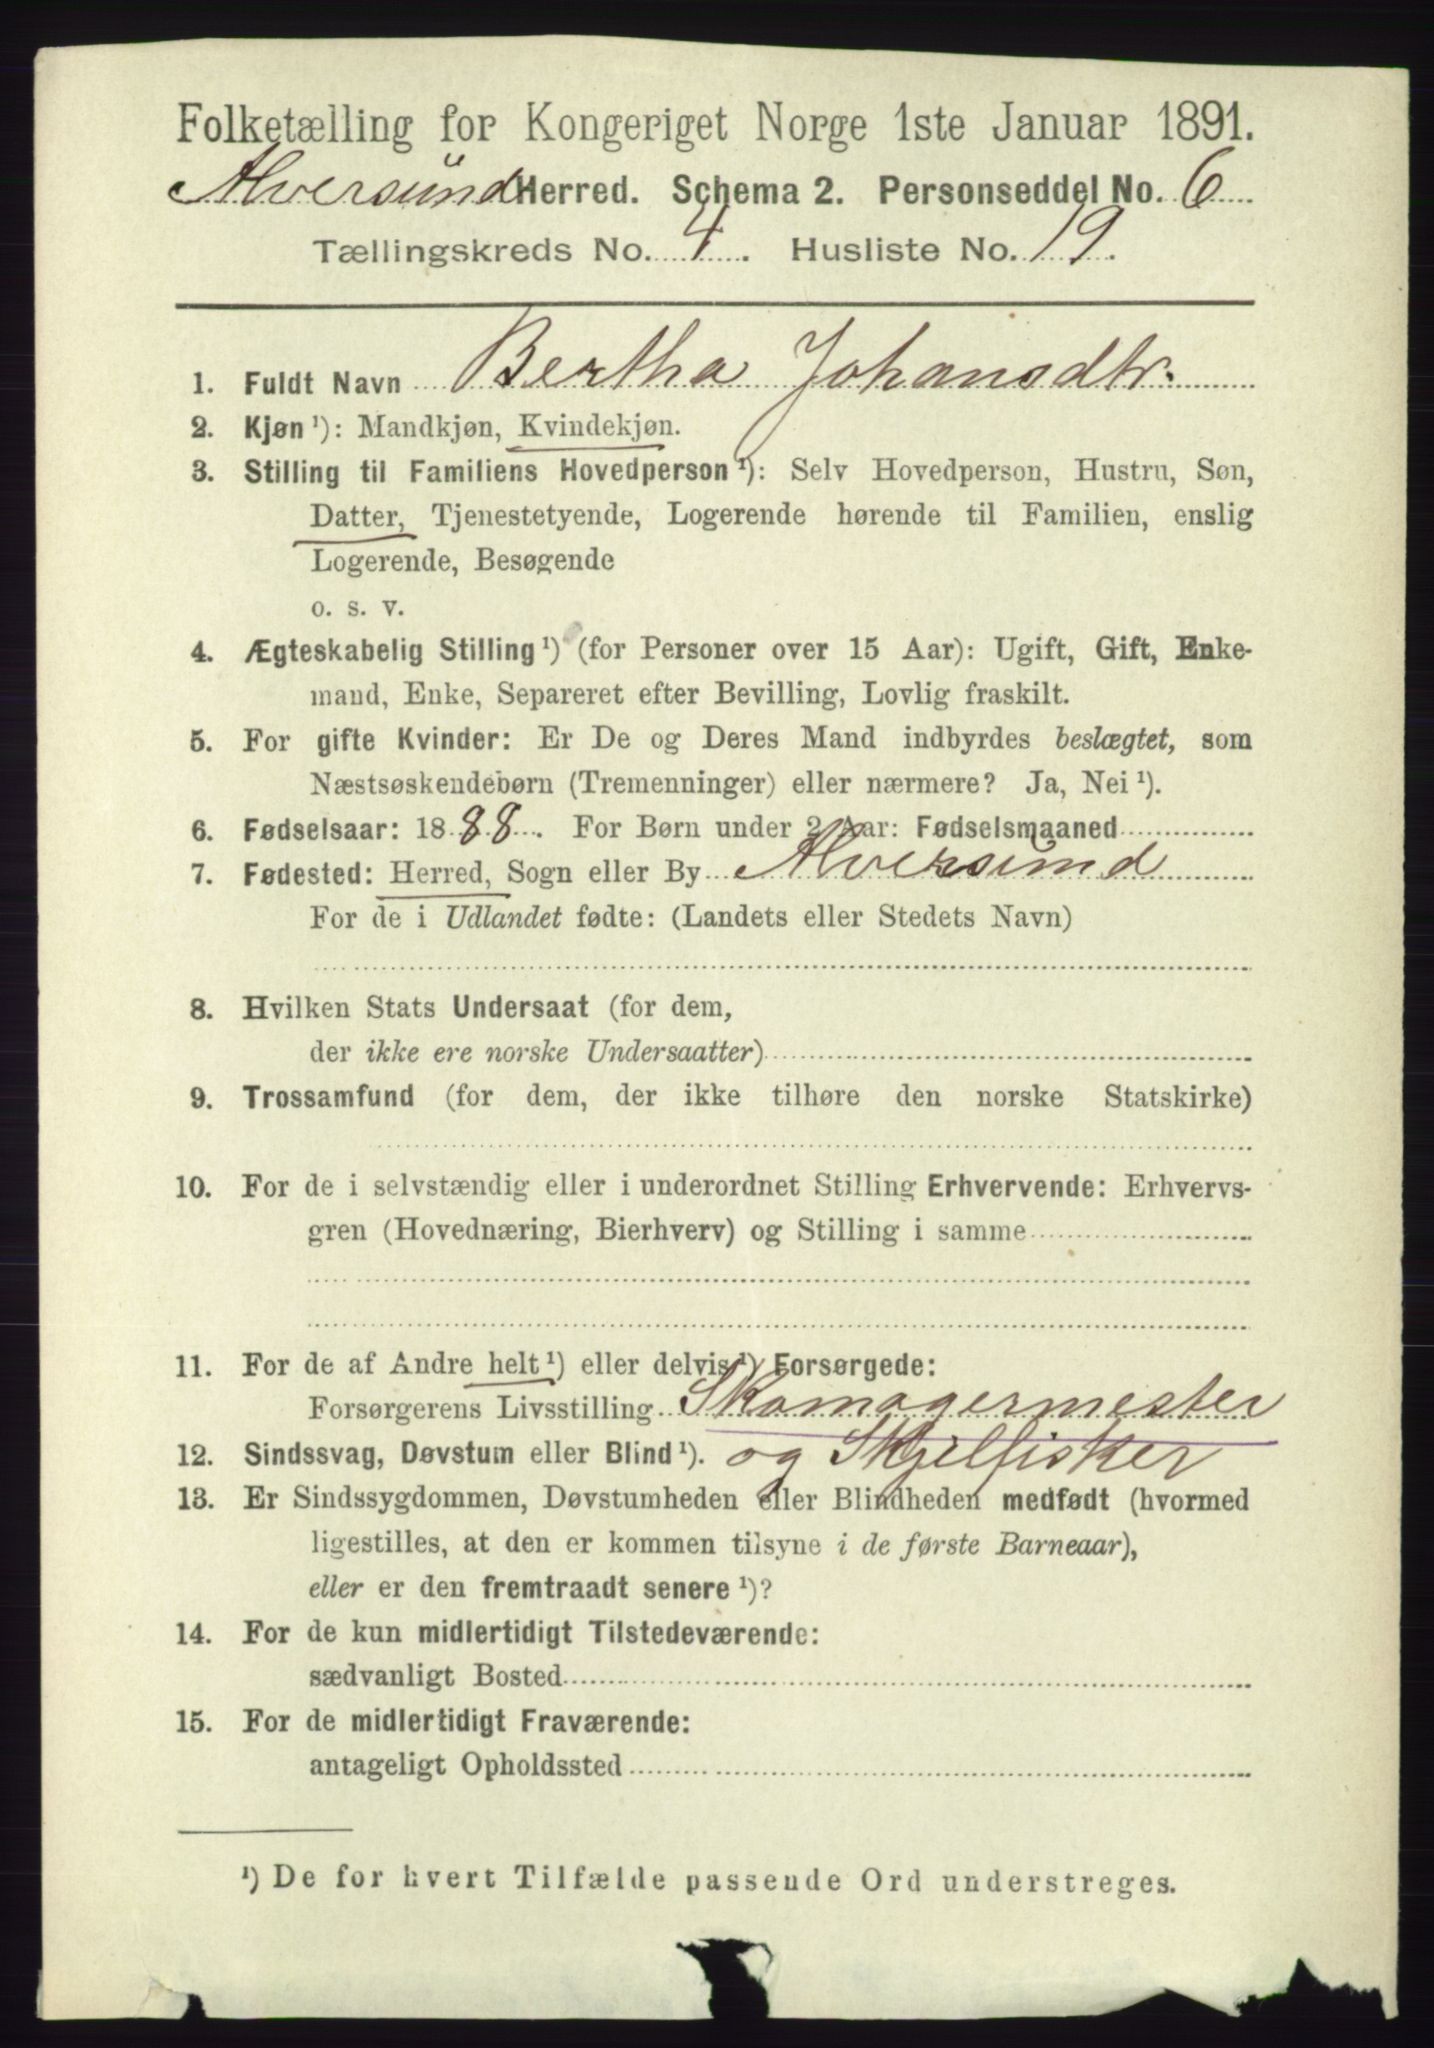 Folketælling for Kongeriget Norge 1ste Januar 1891.
Alversund Herred. Schema 2. Personseddel No. 6
Tællingskreds No. 4. Husliste No. 19.
1. Fuldt Navn Bertha Johansdtr.
2. Kjøn ¹): Mandkjøn, Kvindekjøn.
3. Stilling til Familiens Hovedperson ¹): Selv Hovedperson, Hustru, Søn,
Datter, Tjenestetyende, Logerende hørende til Familien, enslig
Logerende, Besøgende
o. s. v.
4. Ægteskabelig Stilling ¹) (for Personer over 15 Aar): Ugift, Gift, Enke-
mand, Enke, Separeret efter Bevilling, Lovlig fraskilt.
5. For gifte Kvinder: Er De og Deres Mand indbyrdes beslægtet, som
Næstsøskendebørn (Tremenninger) eller nærmere? Ja, Nei ¹).
6. Fødselsaar: 1888. For Børn under 2 Aar: Fødselsmaaned
7. Fødested: Herred, Sogn eller By Alversund
For de i Udlandet fødte: (Landets eller Stedets Navn)
8. Hvilken Stats Undersaat (for dem,
der ikke ere norske Undersaatter)
9. Trossamfund (for dem, der ikke tilhøre den norske Statskirke)
10. For de i selvstændig eller i underordnet Stilling Erhvervende: Erhvervs-
gren (Hovednæring, Bierhverv) og Stilling i samme
11. For de af Andre helt ¹) eller delvis ¹) Forsørgede:
Forsørgerens Livsstilling Skomagermester
12. Sindssvag, Døvstum eller Blind ¹). og Skjelfisker
13. Er Sindssygdommen, Døvstumheden eller Blindheden medfødt (hvormed
ligestilles, at den er kommen tilsyne i de første Barneaar),
eller er den fremtraadt senere ¹)?
14. For de kun midlertidigt Tilstedeværende:
sædvanligt Bosted
15. For de midlertidigt Fraværende:
antageligt Opholdssted
¹) De for hvert Tilfælde passende Ord understreges.